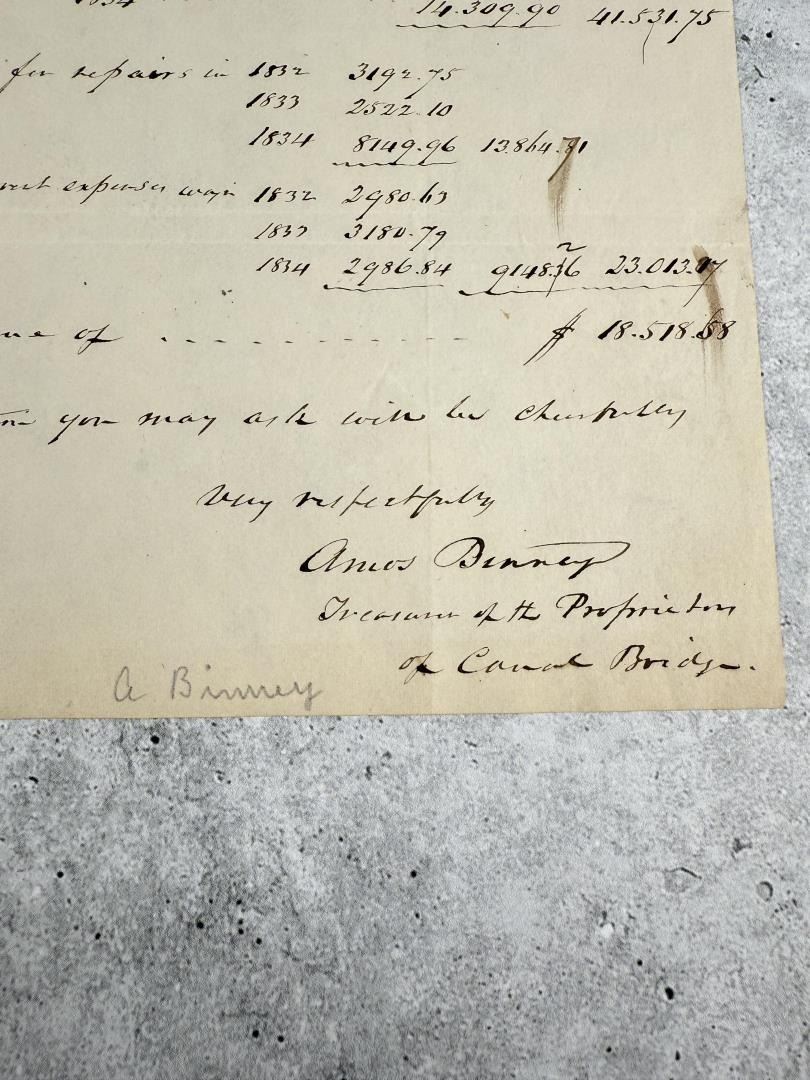 1834 14.309.90 41.531.75
for repairs in 1832 3192.75
1833 2522.10
1834 8149.96 13.864.81
expenses 1832 2980.63
1833 3180.79
1834 2986.84 9148.26 23.013.07
of . . . . . . . . . . . . $ 18.518.68
you may ask will be cheerfully
Very respectfully
Amos Binney
Treasurer of the Proprietors
of Canal Bridge.
A Binney